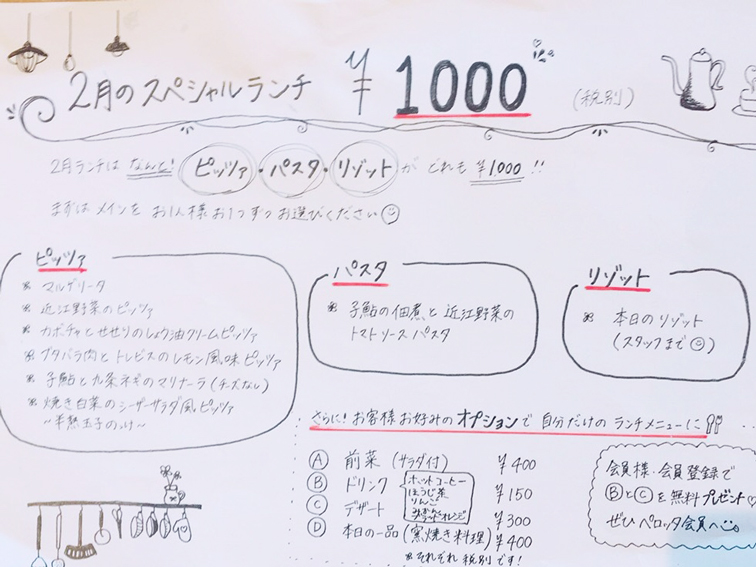 2月のスペシャルランチ ¥1000 (税別)
2月ランチは なんと! ピッツァ・パスタ・リゾット が どれも ¥1000 !!
まずは メインを お1人様 お1つずつ お選びください
ピッツァ
※ マルゲリータ
※ 近江野菜のピッツァ
※ カボチャとせせりのしょう油クリームピッツァ
※ ブタバラ肉とトレビスのレモン風味ピッツァ
※ 子鮎と九条ネギのマリナーラ(チーズなし)
※ 焼き白菜のシーザーサラダ風ピッツァ
〜半熟玉子のっけ〜
パスタ
※ 子鮎の佃煮と近江野菜の
トマトソースパスタ
リゾット
※ 本日のリゾット
(スタッフまで)
さらに! お客様お好みの オプションで 自分だけの ランチメニューに
Ⓐ 前菜 (サラダ付) ¥400
Ⓑ ドリンク ¥150
ホットコーヒー
ほうじ茶
りんご
オレンジ
Ⓒ デザート ¥300
Ⓓ 本日の一品(窯焼き料理) ¥400
※それぞれ 税別です!
会員様・会員登録で
ⒷとⒸを無料プレゼント♡
ぜひ ペロッタ会員へ